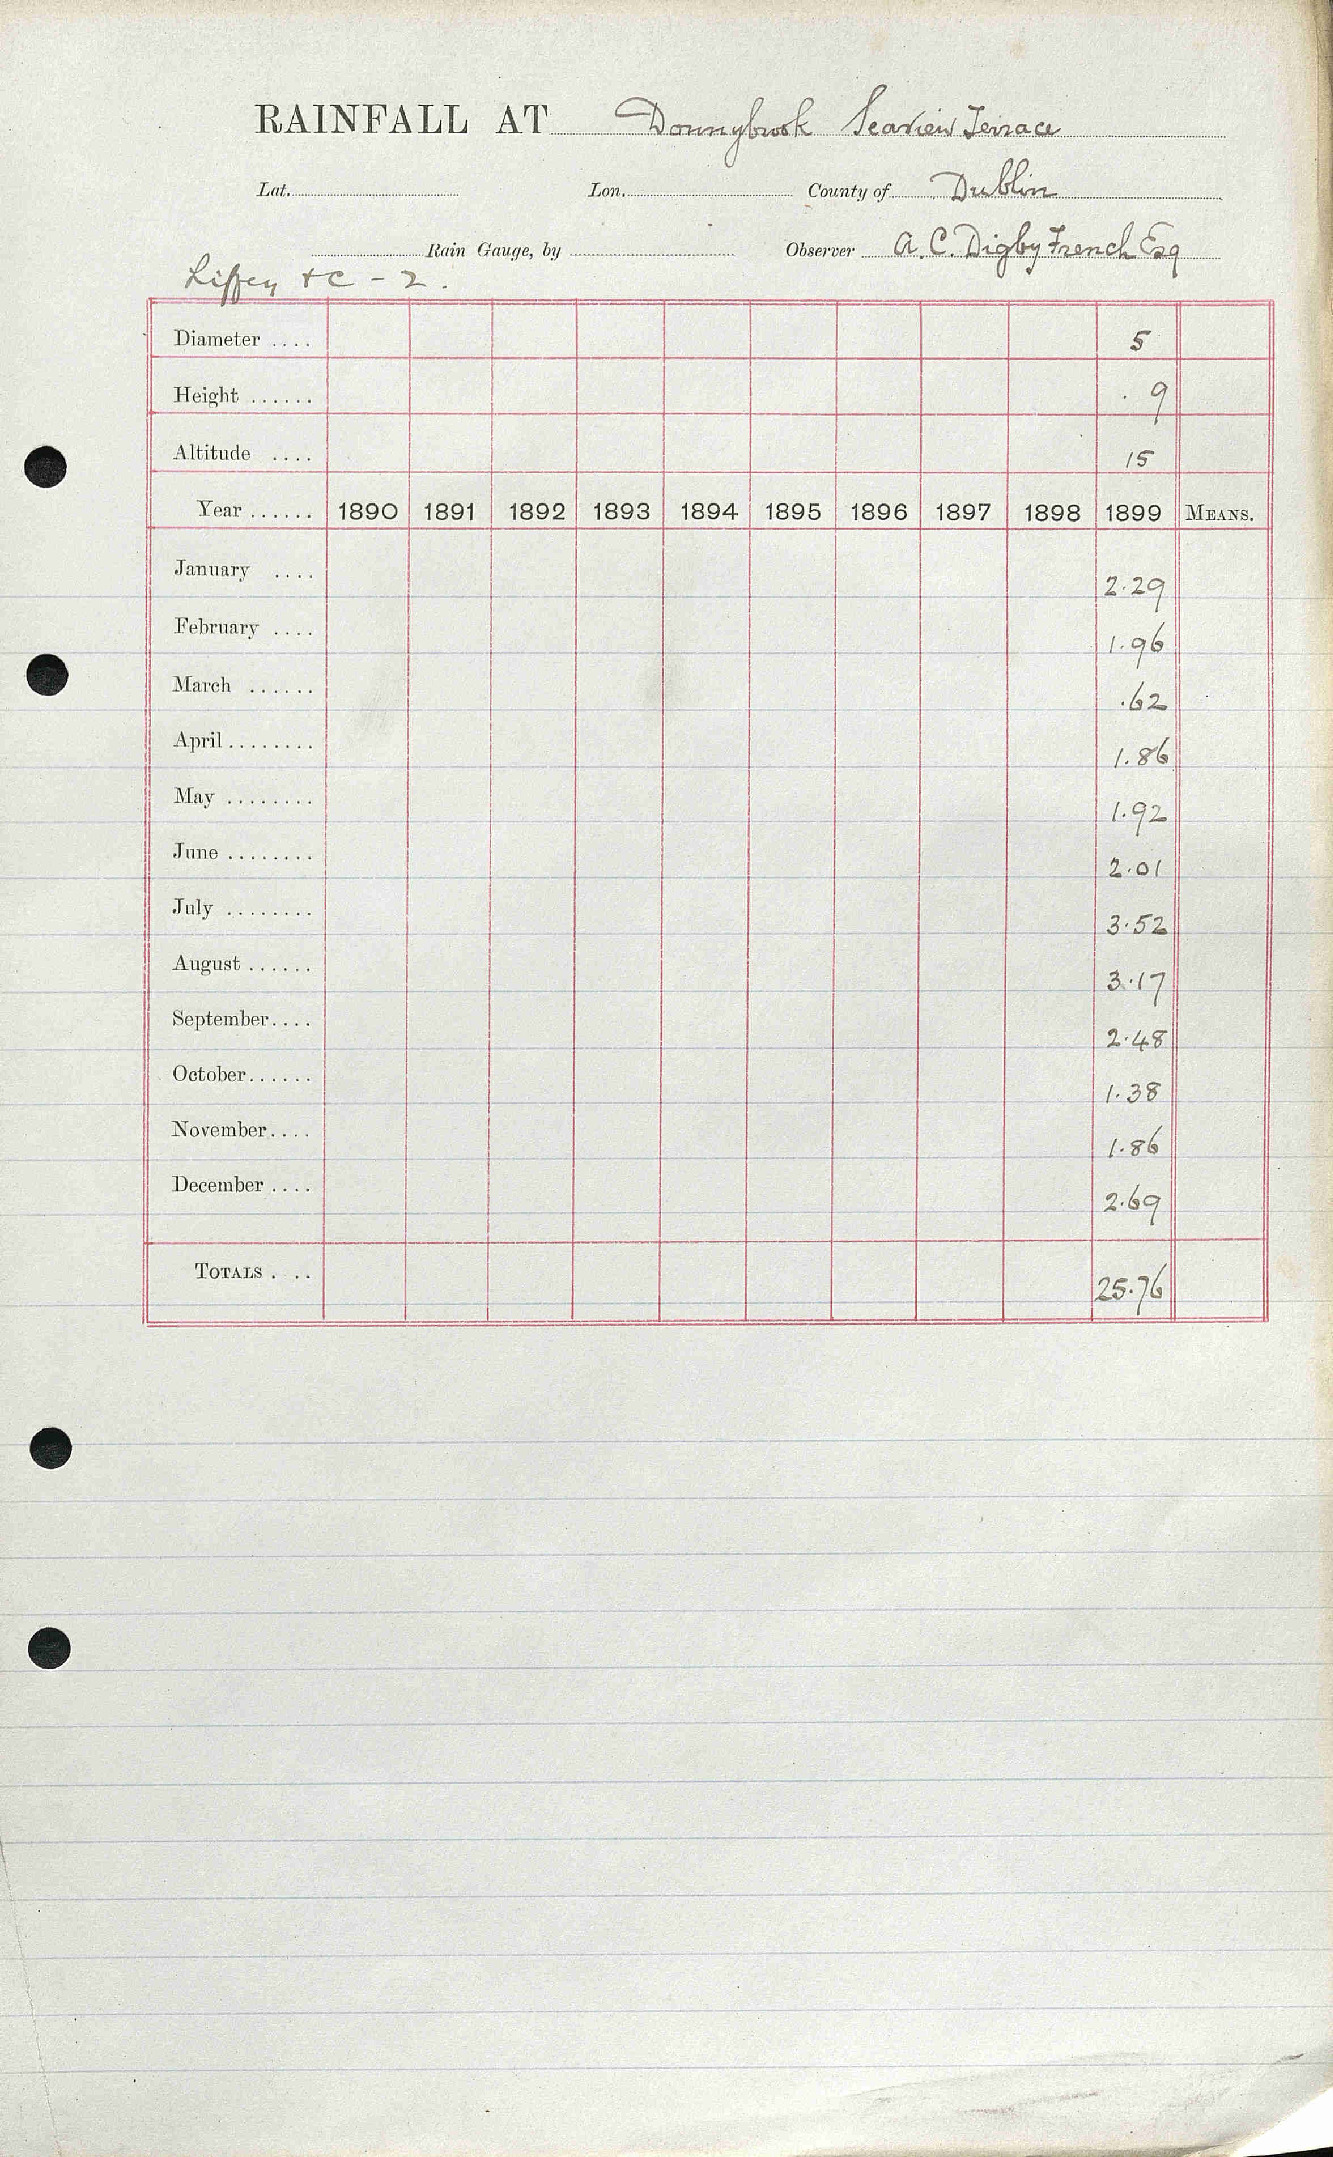 RAINFALL AT Donnybrook Seaview Terrace
Lat. Lon. County of Dublin
Rain Gauge, by Observer A. C. Digby French Esq
Liffey + C - 2.
Diameter .... 5
Height ...... 9
Altitude .... 15
Year ...... 1890 1891 1892 1893 1894 1895 1896 1897 1898 1899 MEANS.
January .... 2.29
February .... 1.96
March ...... .62
April ........ 1.86
May ........ 1.92
June ........ 2.01
July ........ 3.52
August ...... 3.17
September.... 2.48
October...... 1.38
November.... 1.86
December .... 2.69
TOTALS . .. 25.76